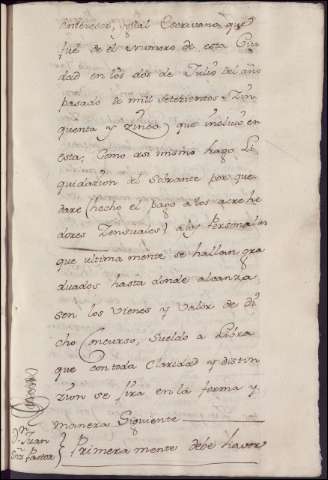 intereses, y tal Escrivano, que
fue de el Numero de esta Ciu
dad en los dos de Julio del año
pasado de mil setecientos Zin
quenta y Zinco) que incluio en
esta; Como asi mismo hago Li
quidazion del Sobrante por que
dare (hecho el pago a los acrehe
dores Zensuales) a los Personales
que ultimamente se hallan gra
duados hasta donde alcanza
sen los vienes y valor de di
cho Concurso, Sueldo a Libra
que con toda Claridad y distin
zion se hira en la forma y
manera Siguiente
Dn. Juan
Pastor } Primeramente debe haver